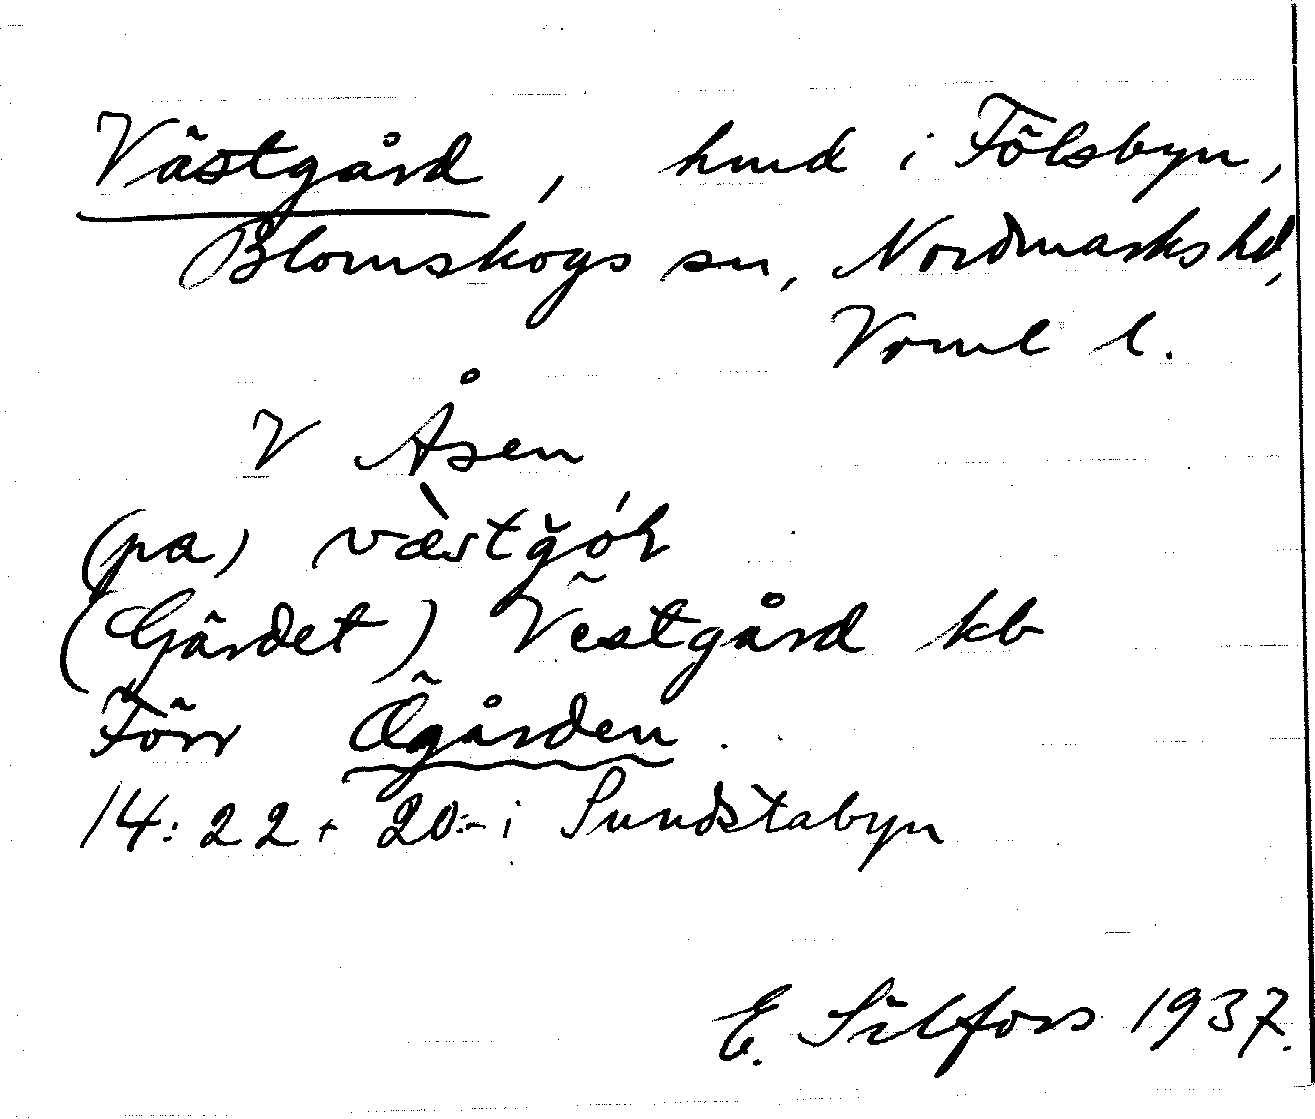 Västgård, hmd i Fölsbyn,
Blomskogs sn, Nordmarks hd,
Vrml l.
V Åsen
(pa) væ̀stgó̆ɽ
(Gärdet) Vestgård kb
Förr Ögården.
14:22 + 20:- i Sundstabyn
E. Silfors 1937.